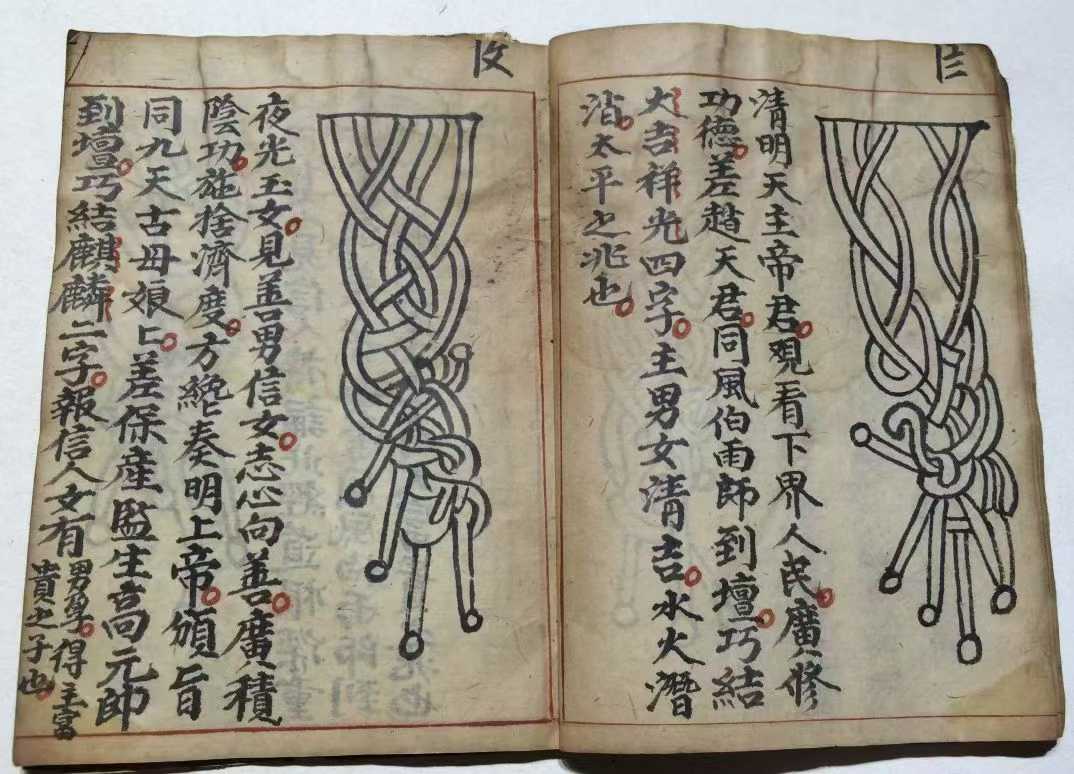 清明天主帝君。观看下界人民。廣修
功德。差趙天君。同風伯雨師到壇。巧結
大吉祥光四字。主男女清吉。水火潛
消。太平之兆也。
夜光玉女。見善男信女。志心向善。廣積
陰功。施捨濟度。方纔奏明上帝。頒旨
同九天古母娘匕。差保産監生高元帥
到壇。巧結麒麟二字。報信人女有
男孕。得主富
貴之子也。